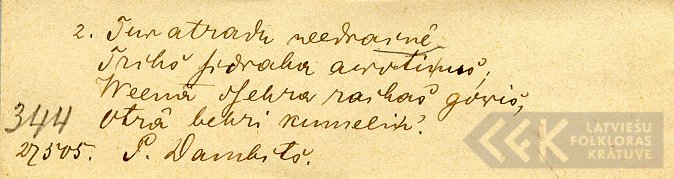 2. Tur atradu needrainē
Trihs sidraba awotiņus,
Weenā dsehra raibas gowis,
344 Otrā behri kumeliņi.
27505. P. Dambits.
LATVIEŠU
FOLKLORAS
KRĀTUVE